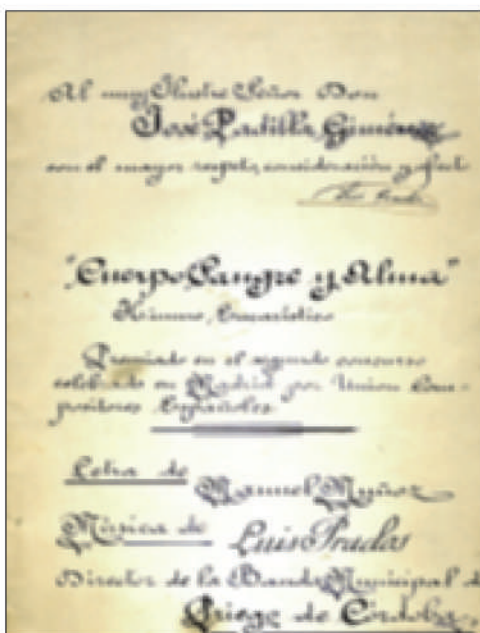 Al muy Ilustre Señor Don
José Padilla Giménez
con el mayor respeto, consideración y afecto
Luis Prados
"Cuerpo, Sangre y Alma"
Himno Eucarístico
Premiado en el segundo concurso
celebrado en Madrid por Union Com-
positores Españoles
Letra de Manuel Muñoz
Música de Luis Prados
Director de la Banda Municipal d
Priego de Córdoba